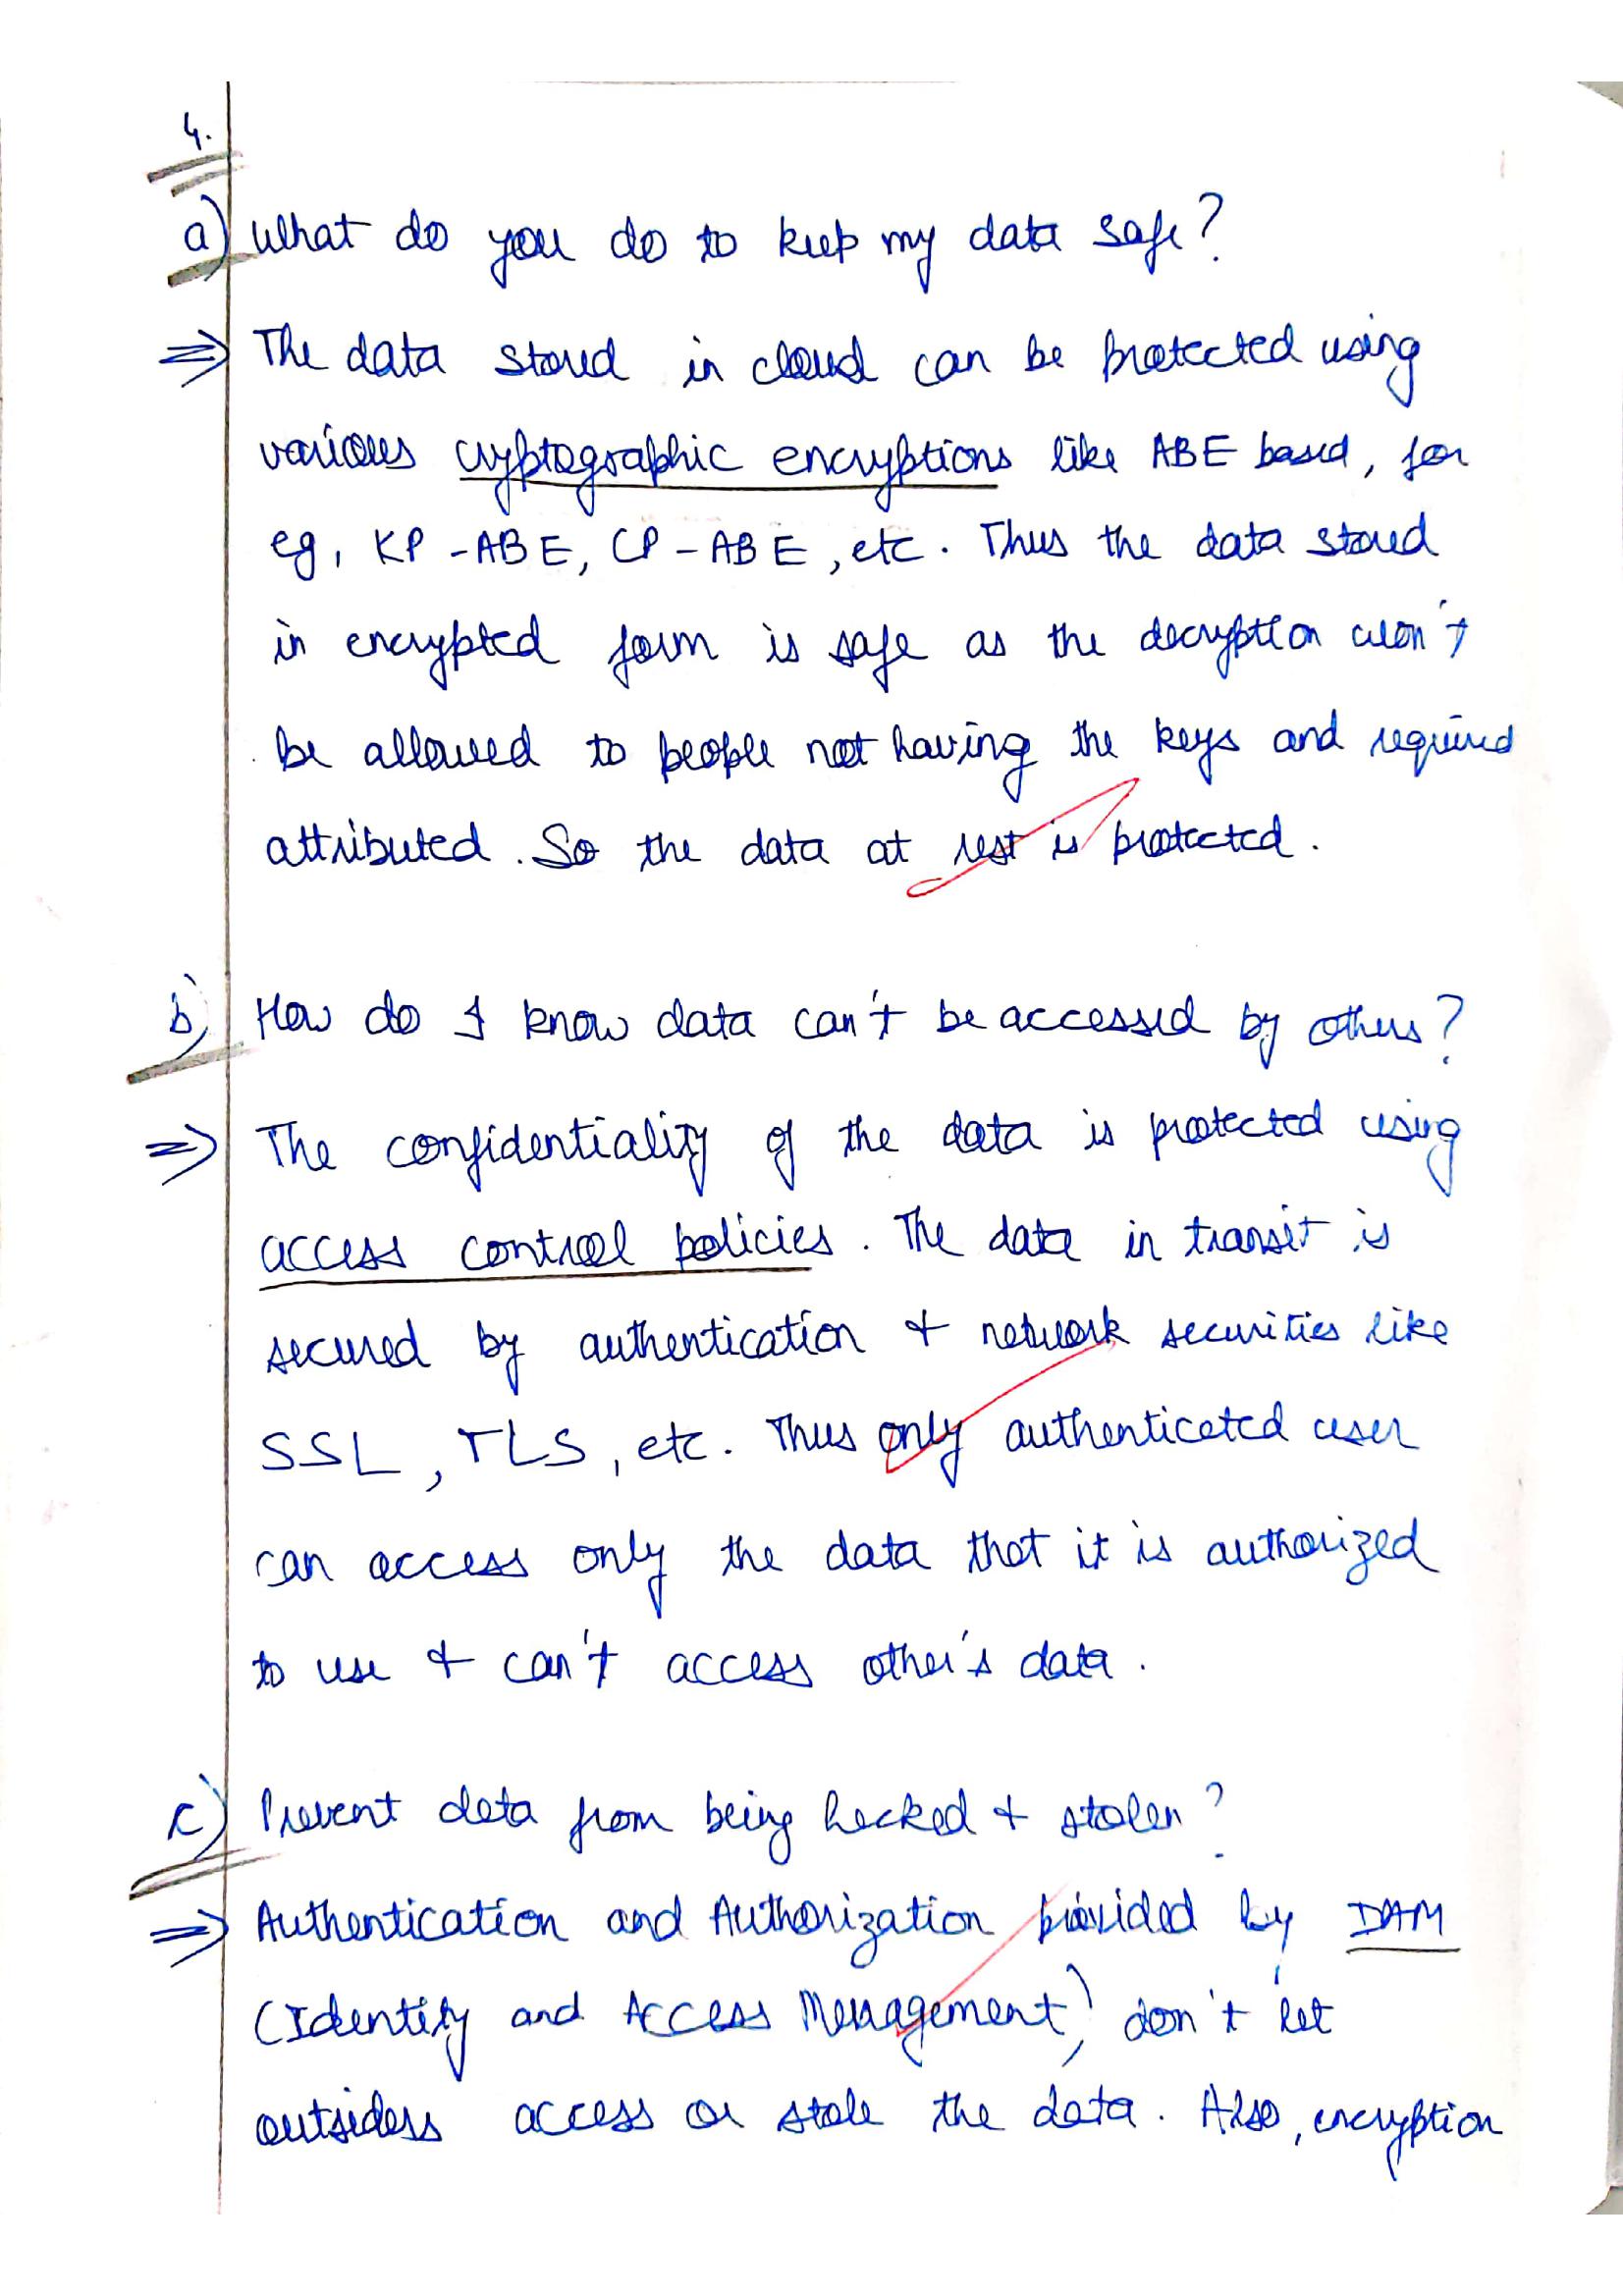 4.
a) What do you do to keep my data safe?
⇒ The data stored in cloud can be protected using
various cryptographic encryptions like ABE based, for
eg, KP-ABE, CP-ABE, etc. Thus the data stored
in encrypted form is safe as the decryption won't
be allowed to people not having the keys and required
attributed. So the data at rest is protected.
b) How do I know data can't be accessed by others?
⇒ The confidentiality of the data is protected using
access control policies. The data in transit is
secured by authentication & network securities like
SSL, TLS, etc. Thus only authenticated user
can access only the data that it is authorized
to use & can't access other's data.
c) Prevent data from being hacked & stolen?
⇒ Authentication and Authorization provided by IAM
(Identity and Access Management) don't let
outsiders access or stole the data. Also, encryption